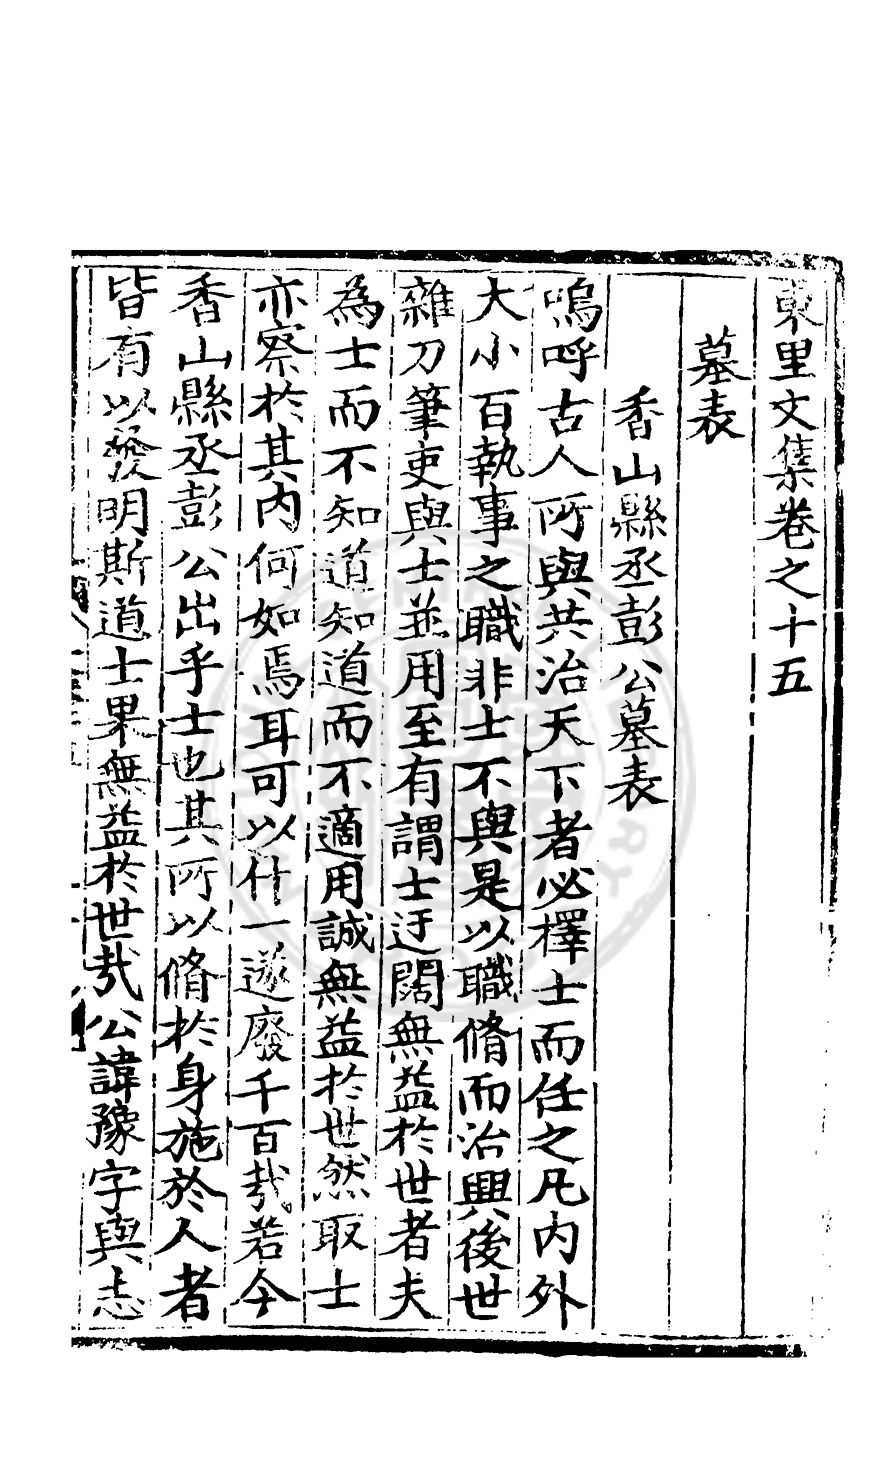 東里文集卷之十五
墓表
香山縣丞彭公墓表
嗚呼古人所與共治天下者必擇士而任之凡内外
大小百執事之職非士不與是以職脩而治興後世
雜刀筆吏與士並用至有謂士迂闊無益於世者夫
為士而不知道知道而不適用誠無益於世然取士
亦察於其内何如焉耳可以什一遂廢千百㦲若今
香山縣丞彭公出乎士也其所以脩於身施於人者
皆有以發明斯道士果無益於世㦲公諱豫字與志